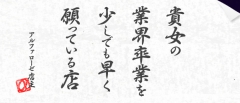 貴女の
業界卒業を
少しでも早く
願っている店
アルファローゼ店主